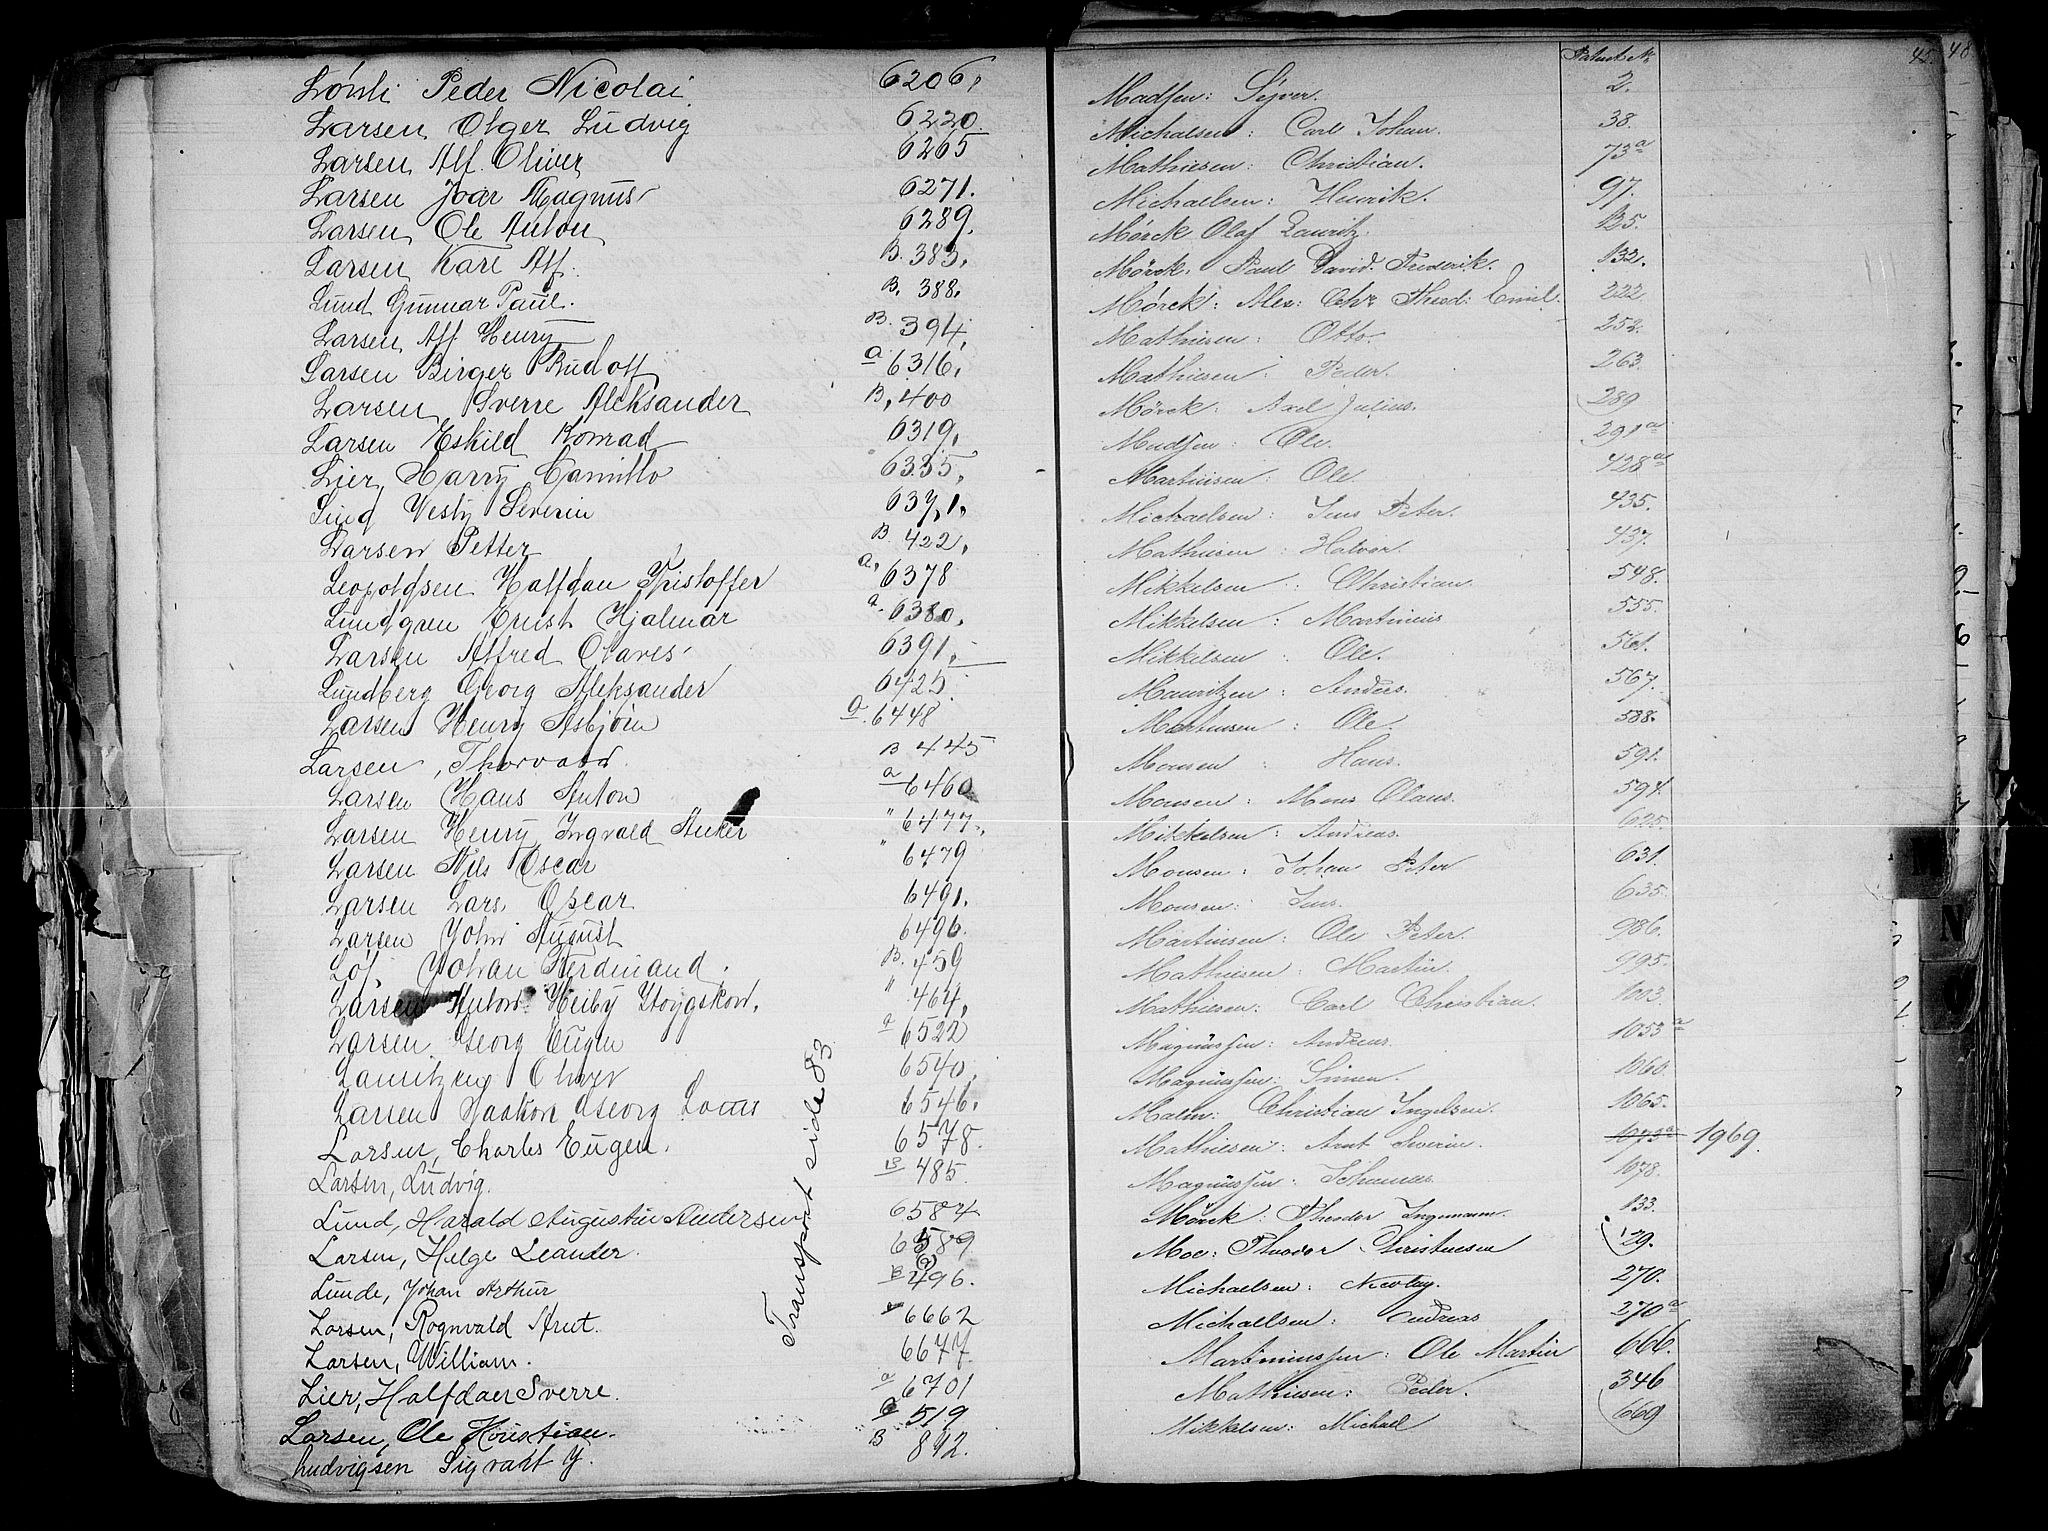 Lönli Peder Nicolai 6206.
Larsen Olger Ludvig 6220.
Larsen Alf. Oliver 6265
Larsen Joar Magnus 6271.
Larsen Ole Anton 6289.
Larsen Karl Alf. B. 383.
Lund Gunnar Paul. B. 388.
Larsen Alf Henry B. 394.
Larsen Birger Rudolf a 6316.
Larsen Sverre Aleksander B. 400
Larsen Eskild Konrad 6319.
Lier Harry Camillo 6335.
Lund Vesty Severin 6371.
Larsen Petter B. 422.
Leopoldsen Halfdan Kristoffer a. 6378
Lundgren Ernst Hjalmar a. 6380.
Larsen Alfred Olaves 6391.
Lundberg Georg Aleksander 6425.
Larsen Henry Asbjörn a. 6448
Larsen, Thorvald. B 445
Larsen Hans Anton a 6460
Larsen Henry Ingvald Anker " 6477.
Larsen Nils Oscar " 6479
Larsen Lars Oscar 6491.
Larsen John August 6496.
Löf. Johan Ferdinand. B. 459
Larsen Anton Heiby " 464.
Larsen Georg Eugen a 6522
Lauritzen Oliver 6540.
Larsen Georg Louis 6546.
Larsen, Charles Eugen. 6578.
Larsen, Ludvig. B 485.
Lund, Harald Augustin Andersen 6584
Larsen, Helge Leander. 6589
Lunde, Johan Arthur B 496.
Larsen, Rognvald Arnt. 6662
Larsen, William. 6677.
Lier, Halfdan Sverre. a 6701
Larsen, Ole Kristian. B 519
Ludvigsen Sigvart J. B 842.
Transport side 83
45. 48
Patent №
Madsen: Syver. 2.
Michalsen: Carl Johan. 38.
Mathiesen: Christian. 73a
Michaelsen: Henrik. 97.
Mörck Olaf Lauritz. 125.
Mörck: Paul David Frederik. 132.
Mörck: Alex: Chr Theod: Emil. 222
Mathiesen: Otto. 252.
Mathiesen: Peder. 263.
Mörck: Axel Julius. 289
Madsen: Ole. 291a
Martinsen: Ole. 428a
Michaelsen: Jens Peter. 435.
Mathiesen: Halvor. 437.
Mikkelsen: Christian. 548.
Mikkelsen: Martinius 555.
Mikkelsen: Ole. 561.
Mauritzen: Anders. 567.
Martinsen: Ole. 588.
Monsen: Hans. 591.
Monsen: Mons Olaus. 594.
Mikkelsen: Andreas. 625.
Monsen: Johan Peter 631.
Monsen: Jens. 635.
Martinsen: Ole Peter. 986.
Mathiesen: Martin. 995.
Mathiesen: Carl Christian. 1003.
Magnussen: Andreas. 1053a
Magnussen: Simen. 1060.
Malm: Christian Ingelsen. 1065.
Mathiesen: Arnt Severin. 1073a 1969.
Magnussen: Johannes. 1078.
Mörck: Theodor Ingemann. 133.
Moe: Theodor Christensen 129.
Michaelsen: Nicolay. 270.
Michaellsen: Andreas 270a
Martiniussen: Ole Martin 666.
Mathiesen: Peder. 346
Mikkelsen: Michael 669
M
N
O